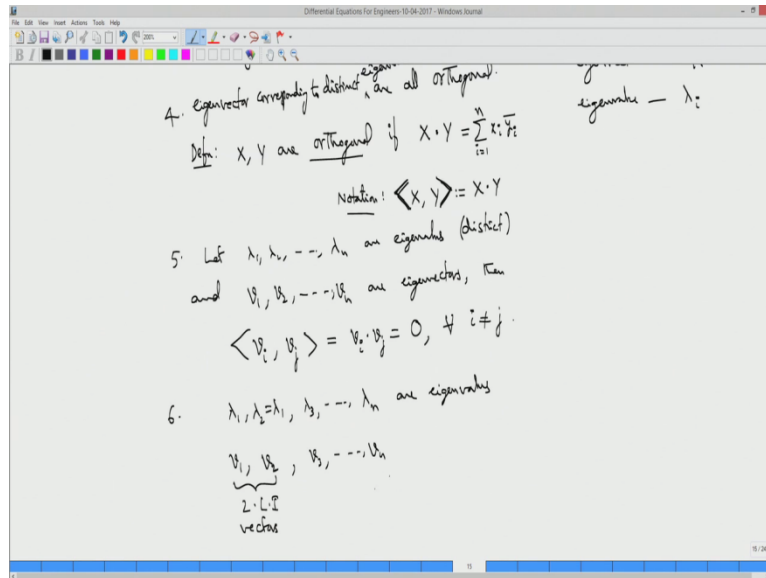 Differential Equations For Engineers-10-04-2017 - Windows Journal
File Edit View Insert Actions Tools Help
200%
B I
4. eigenvector correponding to distinct eigenv are all orthogonal.
eigenvalue — λi
Defn: X, Y are orthogonal if X · Y = ∑ⁿᵢ₌₁ xi ȳi
Notation: <X, Y> := X · Y
5. Let λ1, λ2, ---, λn are eigenvalues (distict)
and v1, v2, ---, vn are eigenvectors, then
<vi, vj> = vi · vj = 0, ∀ i ≠ j.
6. λ1, λ2=λ1, λ3, ---, λn are eigenvalues
v1, v2, v3, ---, vn
2 · L · I
vectors
15
15/24